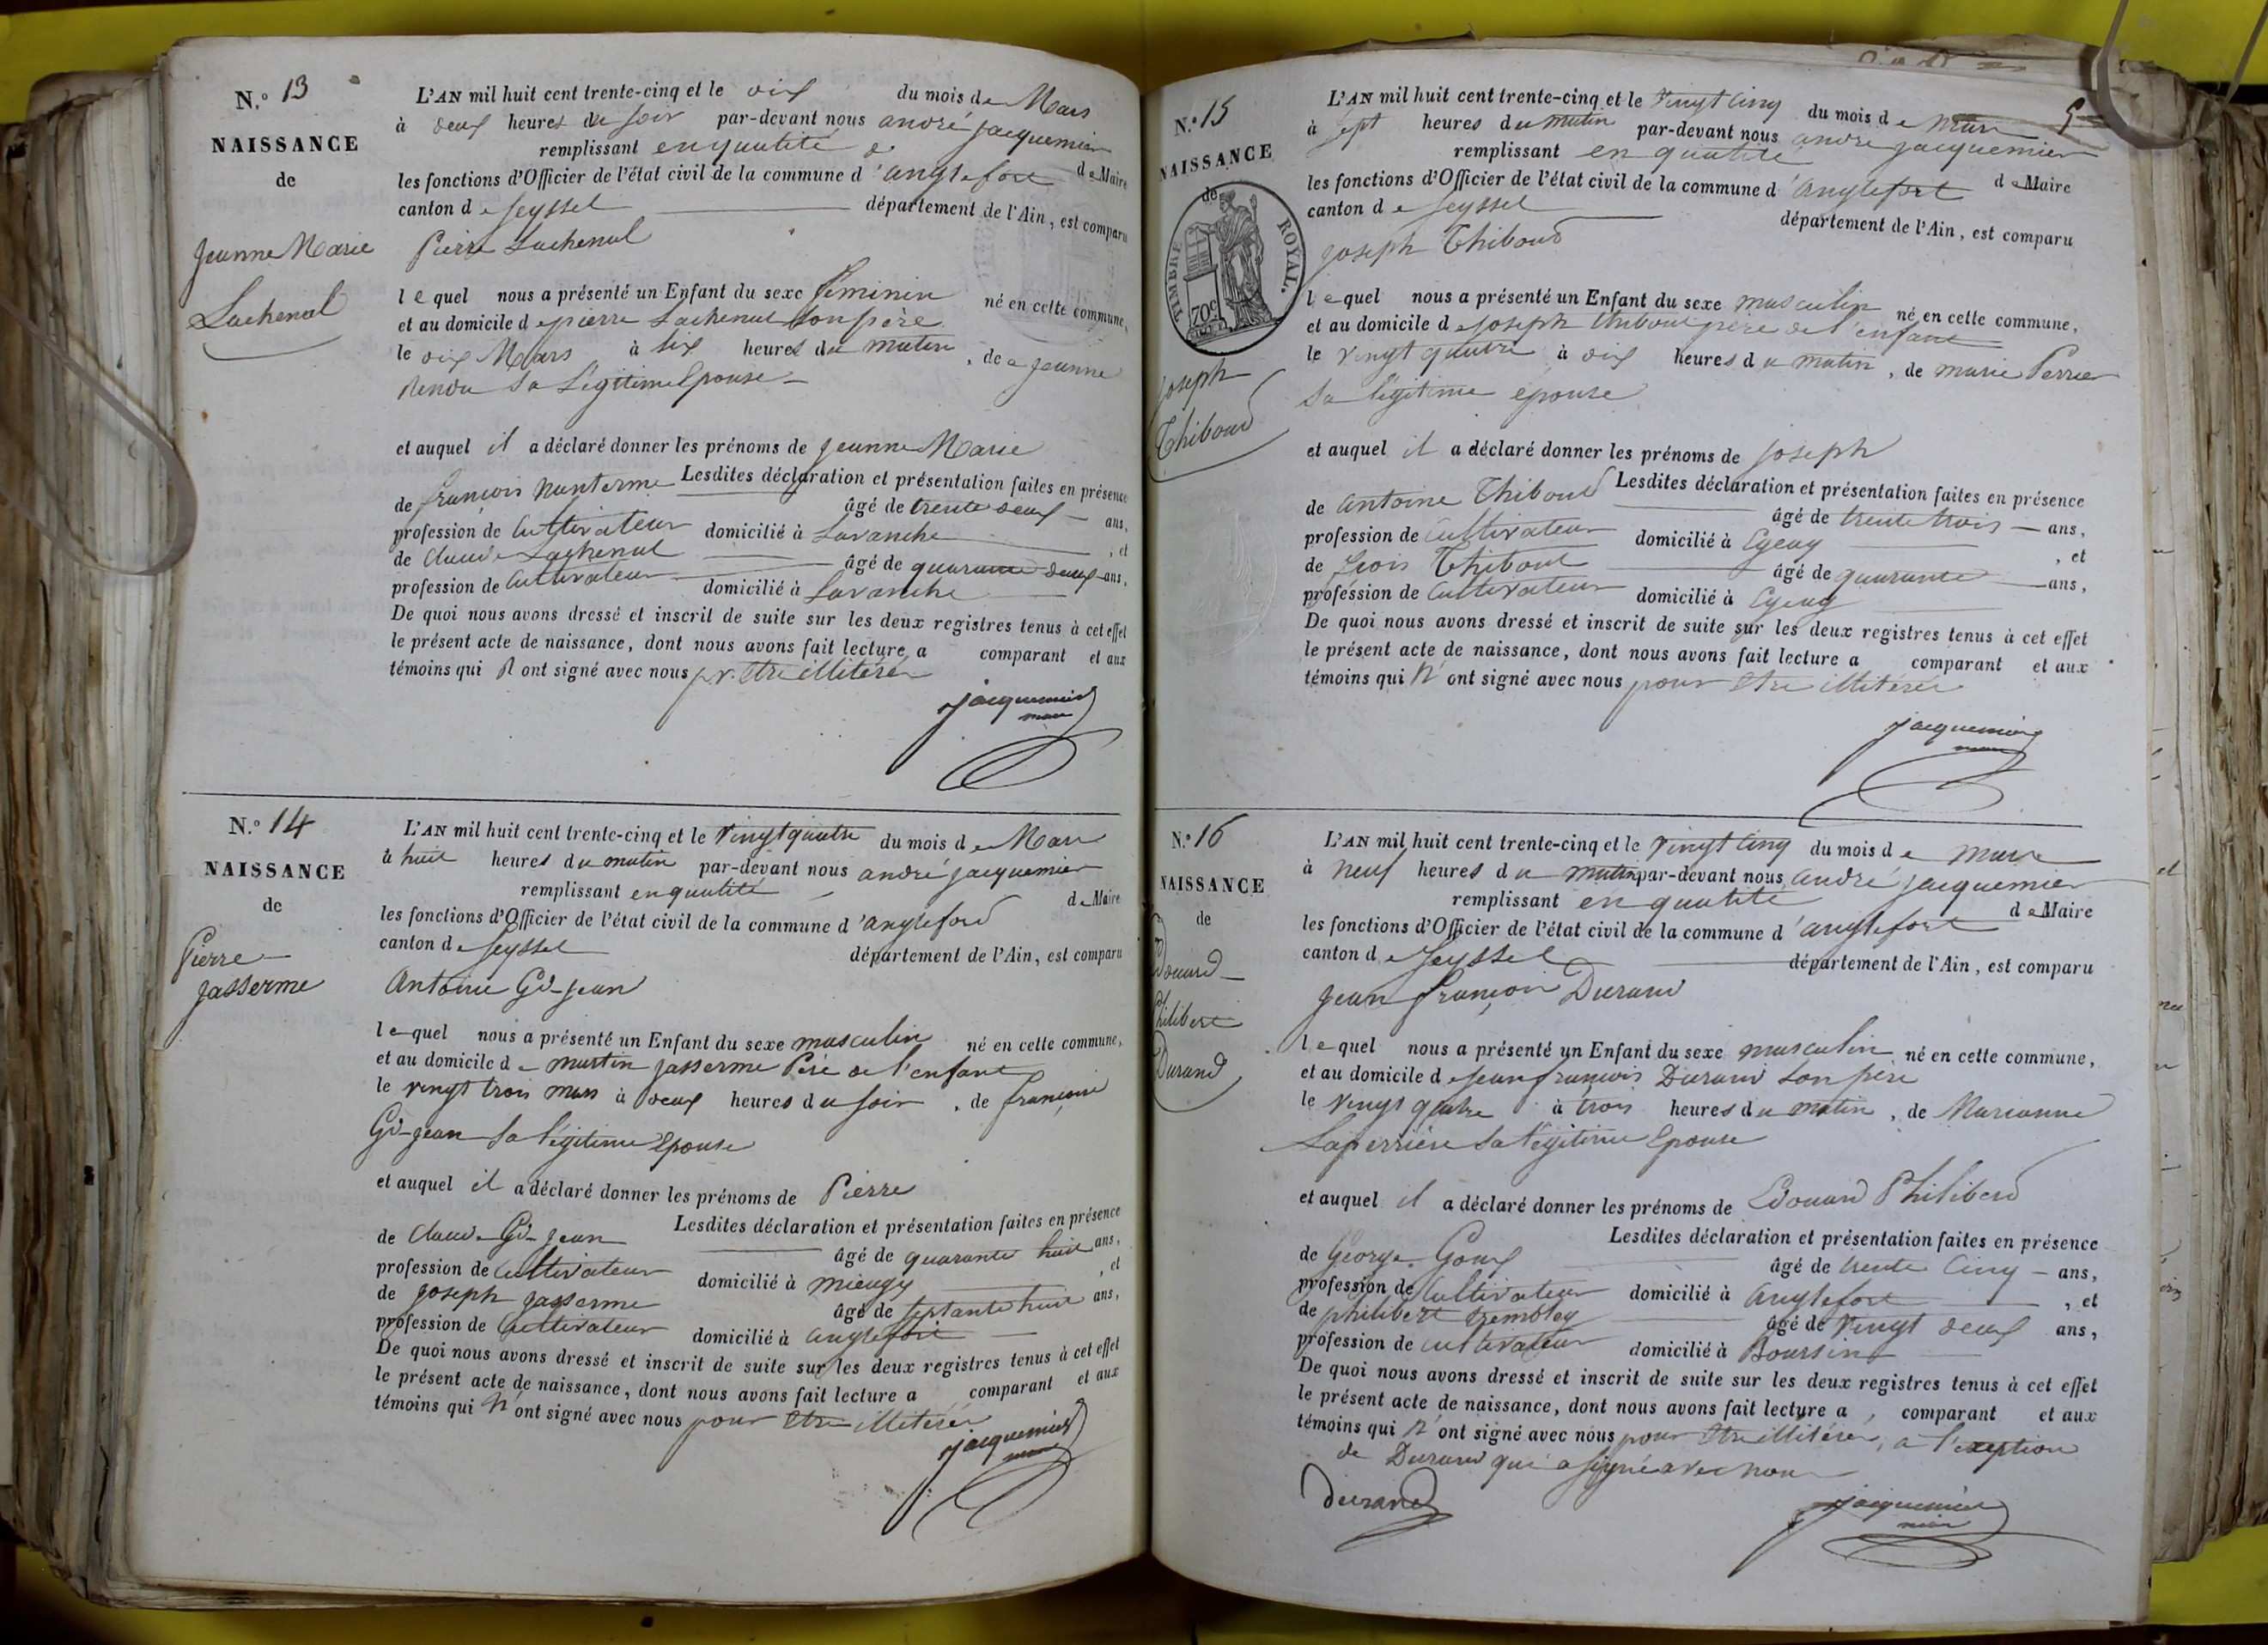 N.º 13
NAISSANCE
de
Jeanne Marie
Lachenal
L'AN mil huit cent trente-cinq et le dix du mois de Mars
à deux heures du soir par-devant nous andré jacquemier
remplissant en qualité de Maire
les fonctions d'Officier de l'état civil de la commune d'anglefort
canton de Seyssel département de l'Ain, est comparu
Pierre Lachenal
lequel nous a présenté un Enfant du sexe féminin né en cette commune,
et au domicile de pierre Lachenal son père
le dix Mars à six heures du matin, de Jeanne
sa légitime Epouse
et auquel il a déclaré donner les prénoms de Jeanne Marie
Lesdites déclaration et présentation faites en présence
de françois nanterme âgé de trente deux ans,
profession de Cultivateur domicilié à Lavanche, et
de Claude Lachenal âgé de quarante deux ans,
profession de Cultivateur domicilié à Lavanche
De quoi nous avons dressé et inscrit de suite sur les deux registres tenus à cet effet
le présent acte de naissance, dont nous avons fait lecture a comparant et aux
témoins qui n ont signé avec nous pr. être illitérés
jacquemier
maire
N.º 14
NAISSANCE
de
Pierre
jasserme
L'AN mil huit cent trente-cinq et le vingt quatre du mois de Mars
à huit heures du matin par-devant nous andré jacquemier
remplissant en qualité de Maire
les fonctions d'Officier de l'état civil de la commune d'angleford
canton de Seyssel département de l'Ain, est comparu
Antoine Gd-jean
lequel nous a présenté un Enfant du sexe masculin né en cette commune,
et au domicile de martin jasserme Père de l'enfant
le vingt trois mars à deux heures du soir, de françoise
Gd-jean sa légitime Epouse
et auquel il a déclaré donner les prénoms de Pierre
Lesdites déclaration et présentation faites en présence
de Claude Gd-jean âgé de quarante huit ans,
profession de Cultivateur domicilié à mieugy, et
de joseph jasserme âgé de septante huit ans,
profession de Cultivateur domicilié à anglefort
De quoi nous avons dressé et inscrit de suite sur les deux registres tenus à cet effet
le présent acte de naissance, dont nous avons fait lecture a comparant et aux
témoins qui n'ont signé avec nous pour être illitérés
jacquemier
maire
5
N.º 15
NAISSANCE
de
TIMBRE ROYAL.
70c
joseph
Thiboud
L'AN mil huit cent trente-cinq et le vingt cinq du mois de mars
à sept heures du matin par-devant nous andré jacquemier
remplissant en qualité de Maire
les fonctions d'Officier de l'état civil de la commune d'anglefort
canton de Seyssel département de l'Ain, est comparu
joseph Thiboud
lequel nous a présenté un Enfant du sexe masculin né en cette commune,
et au domicile de joseph thiboud père de l'enfant
le vingt quatre à dix heures du matin, de marie Perrier
sa légitime épouse
et auquel il a déclaré donner les prénoms de joseph
Lesdites déclaration et présentation faites en présence
de antoine Thiboud âgé de trente trois ans,
profession de cultivateur domicilié à Eyeug, et
de Thiboud âgé de quarante ans,
profession de Cultivateur domicilié à Eyeug
De quoi nous avons dressé et inscrit de suite sur les deux registres tenus à cet effet
le présent acte de naissance, dont nous avons fait lecture a comparant et aux
témoins qui n'ont signé avec nous pour être illitérés
jacquemier
maire
N.º 16
NAISSANCE
de
Edouard
Philibert
Durand
L'AN mil huit cent trente-cinq et le vingt cinq du mois de mars
à neuf heures du matin par-devant nous andré jacquemier
remplissant en qualité de Maire
les fonctions d'Officier de l'état civil de la commune d'anglefort
canton de Seyssel département de l'Ain, est comparu
jean françois Durand
lequel nous a présenté un Enfant du sexe masculin né en cette commune,
et au domicile de jean françois Durand son père
le vingt quatre à trois heures du matin, de Marianne
Laperrière sa légitime Epouse
et auquel il a déclaré donner les prénoms de Edouard Philiberd
Lesdites déclaration et présentation faites en présence
de George Goux âgé de trente cinq ans,
profession de Cultivateur domicilié à anglefort, et
de philibert trembley âgé de vingt deux ans,
profession de cultivateur domicilié à Boursin
De quoi nous avons dressé et inscrit de suite sur les deux registres tenus à cet effet
le présent acte de naissance, dont nous avons fait lecture a, comparant et aux
témoins qui n'ont signé avec nous pour être illitérés, a l'exeption
de Durand qui a signé avec nous
durand
jacquemier
maire